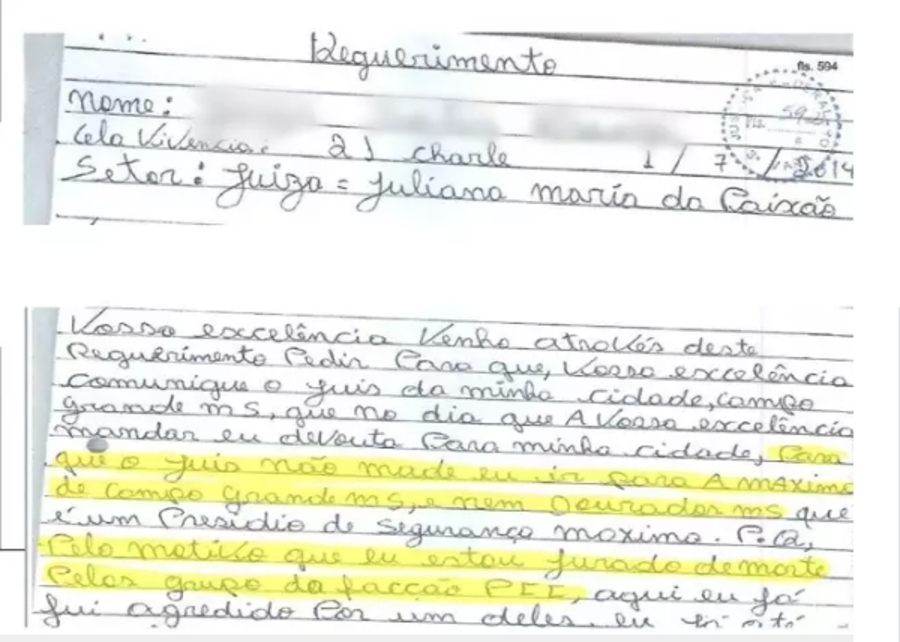 Requerimento
fls. 594
nome:
Cela Vivencia: 21 charle 1 / 7 / 2014
Setor: Juiza = Juliana maria da Paixão
Vossa excelência Venho atravéis deste
Requerimento Pedir Para que, Vossa excelência
comunique o juis da minha cidade, campo
grande ms, que no dia que A Vossa excelência
mandar eu devouta Para minha cidade, Para
que o juis não made eu ir para A maxima
de campo grande ms, e nem Dourados ms que
é um Presidio de segurança maxima. P.q,
Pelo motivo que eu estou jurado de morte
Pelos grupo da facção PCC, aqui eu já
fui agredido Por um deles, eu